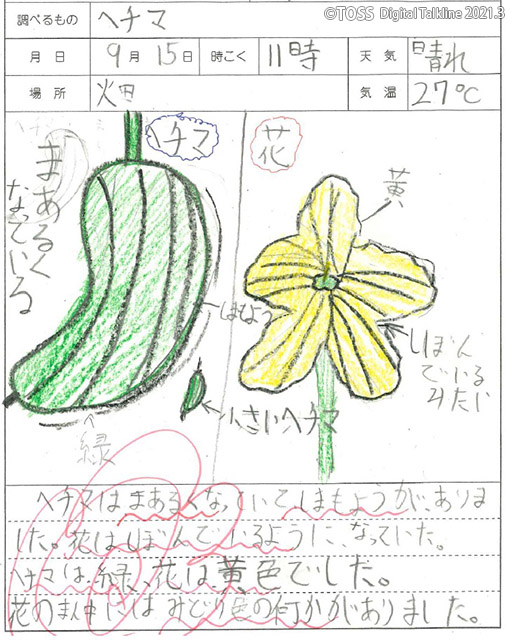 ©TOSS Digital Talkline 2021.3
調べるもの ヘチマ
月日 9月15日 時こく 11時 天気 晴れ
場所 畑 気温 27℃
ヘチマ
花
まあるく
なっている
黄
しぼん
でいる
みたい
小さいヘチマ
緑
ヘチマはまあるくなっていてしまもようが、ありま
した。花はしぼんでいるように、なっていた。
ヘチマは、緑、花は、黄色でした。
花のまん中にはみどり色の何かがありました。